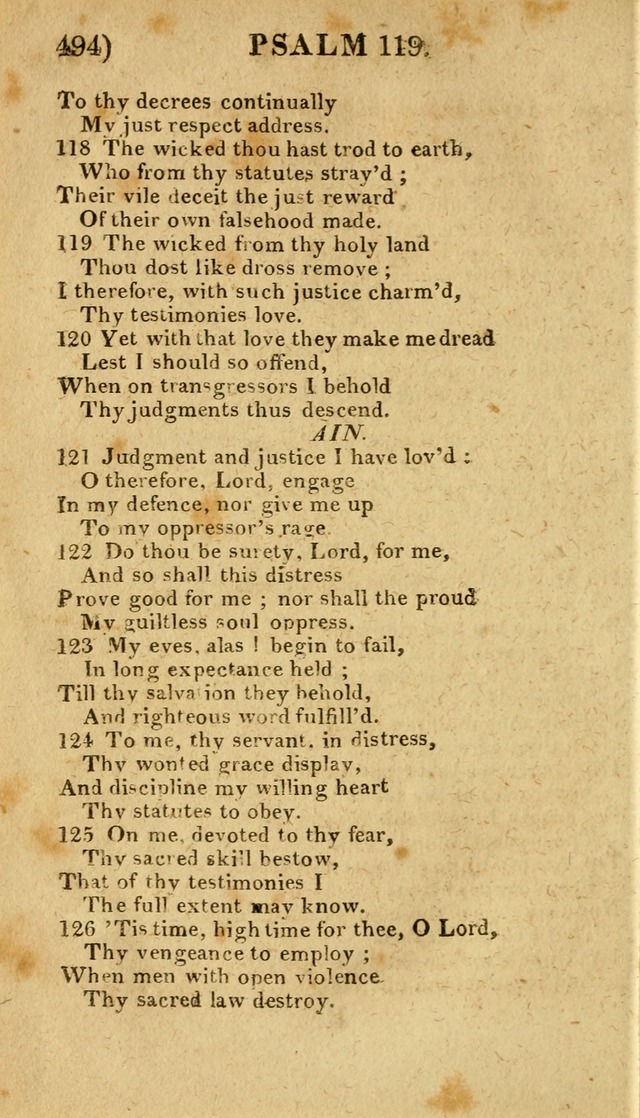 494) PSALM 119.
To thy decrees continually
My just respect address.
118 The wicked thou hast trod to earth,
Who from thy statutes stray'd ;
Their vile deceit the just reward
Of their own falsehood made.
119 The wicked from thy holy land
Thou dost like dross remove ;
I therefore, with such justice charm'd,
Thy testimonies love.
120 Yet with that love they make me dread
Lest I should so offend,
When on transgressors I behold
Thy judgments thus descend.
AIN.
121 Judgment and justice I have lov'd :
O therefore, Lord, engage
In my defence, nor give me up
To my oppressor's rage.
122 Do thou be surety, Lord, for me,
And so shall this distress
Prove good for me ; nor shall the proud
My guiltless soul oppress.
123 My eyes, alas ! begin to fail,
In long expectance held ;
Till thy salvation they behold,
And righteous word fulfill'd.
124 To me, thy servant, in distress,
Thy wonted grace display,
And discipline my willing heart
Thy statutes to obey.
125 On me, devoted to thy fear,
Thy sacred skill bestow,
That of thy testimonies I
The full extent may know.
126 'Tis time, high time for thee, O Lord,
Thy vengeance to employ ;
When men with open violence
Thy sacred law destroy.